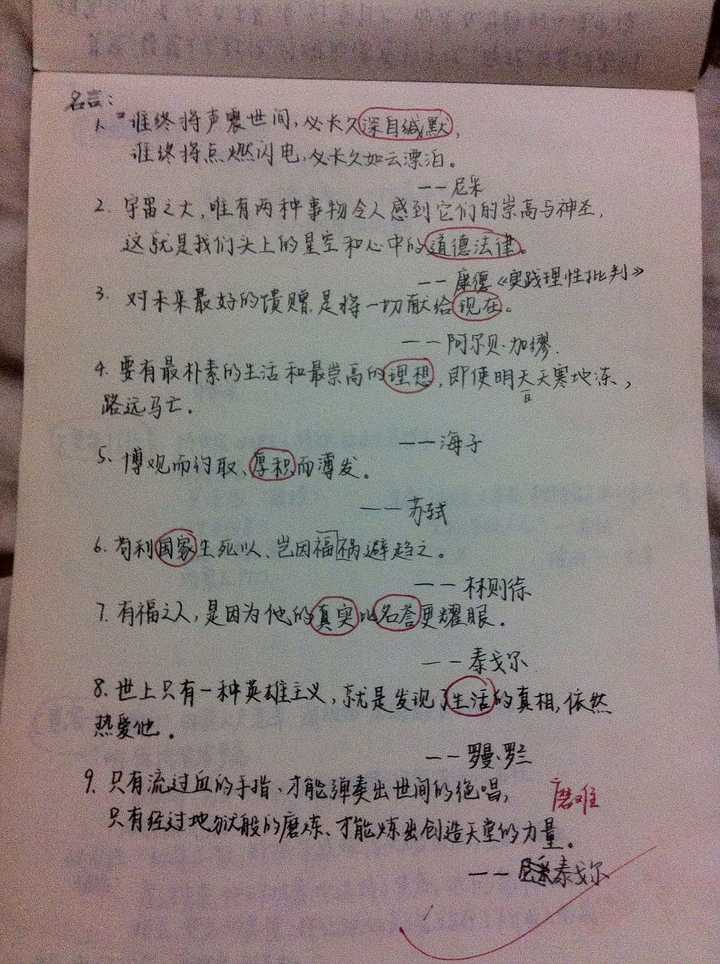 名言：
1. "谁终将声震世间，必长久深自缄默，
谁终将点燃闪电，必长久如云漂泊。
——尼采
2. 宇宙之大，唯有两种事物令人感到它们的崇高与神圣，
这就是我们头上的星空和心中的道德法律。
——康德《实践理性批判》
3. 对未来最好的馈赠是将一切献给现在。
——阿尔贝·加缪.
4. 要有最朴素的生活和最崇高的理想，即使明天天寒地冻，
路远马亡。
——海子
5. 博观而约取、厚积而薄发。
——苏轼
6. 苟利国家生死以、岂因福祸避趋之。
——林则徐
7. 有福之人，是因为他的真实比名誉更耀眼。
——泰戈尔
8. 世上只有一种英雄主义，就是发现了生活的真相，依然
热爱他。
——罗曼·罗兰
9. 只有流过血的手指、才能弹奏出世间的绝唱，
磨难
只有经过地狱般的磨炼、才能炼出创造天堂的力量。
——泰戈尔